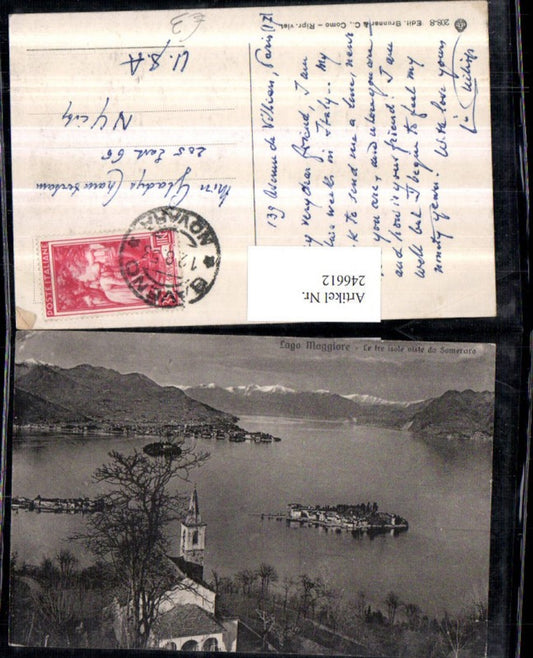 209-8 Edit. Brunner & C., Como - Ripr. viet.
139 Avenue de Villiers, Paris 17
very dear friend, I am
weeks in Italy. My
to send me a line, news
you are, and when you
and how is your friend. I am
well but I begin to feel my
ninety years! With love yours
Miss Gladys
205 East 65
NY city
U.S.A
POSTE ITALIANE
NOVARA
Artikel Nr.
246612
Lago Maggiore - Le tre isole viste da Someraro